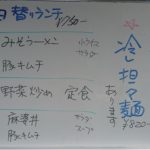 日替ランチ
750-
みそラーメン
豚キムチ
小ライス
サラダ
野菜炒め 定食
麻婆丼
豚キムチ
サラダ
スープ
冷し坦々麺
あります
¥820-